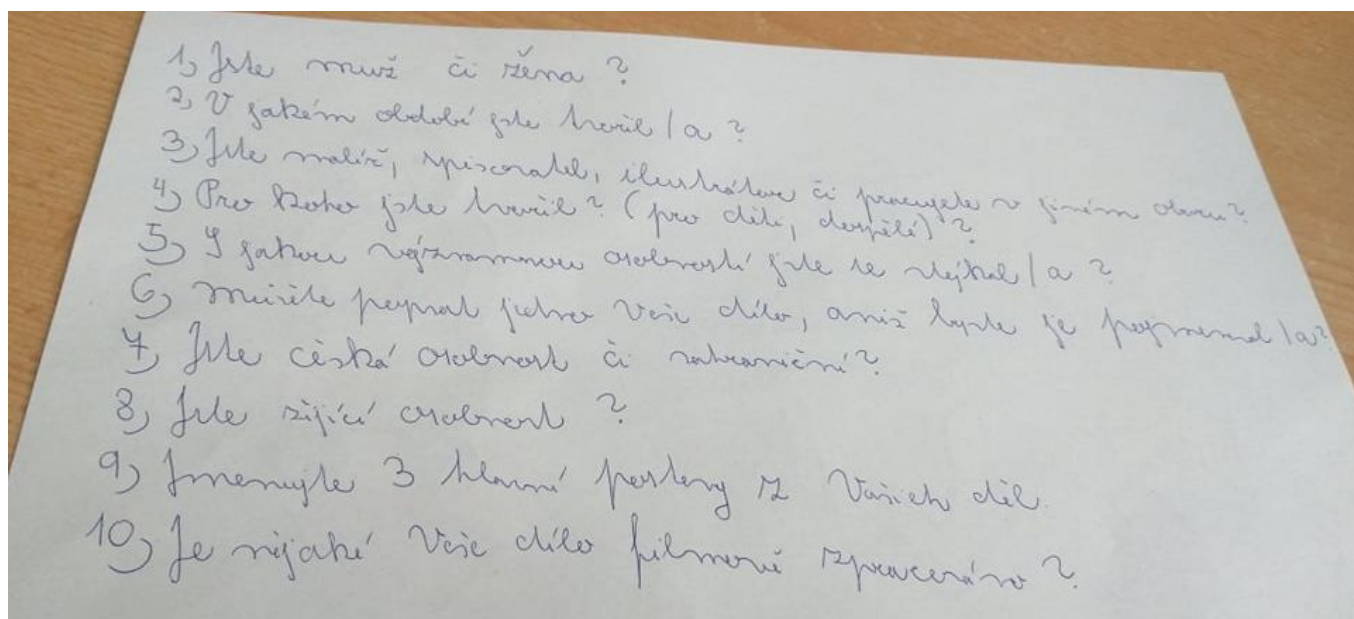 1, Jste muž či žena ?
2, V jakém období jste tvořil / a ?
3, Jste malíř, spisovatel, ilustrátor či pracujete v jiném oboru?
4, Pro koho jste tvořil ? (pro děti, dospělé) ?
5, S jakou významnou osobností jste se stýkal / a ?
6, Můžete popsat jedno Vaše dílo, aniž byste je pojmenoval / a?
7, Jste česká osobnost či zahraniční?
8, Jste žijící osobnost ?
9, Jmenujte 3 hlavní postavy z Vašich děl.
10, Je nějaké Vaše dílo filmově zpracováno ?